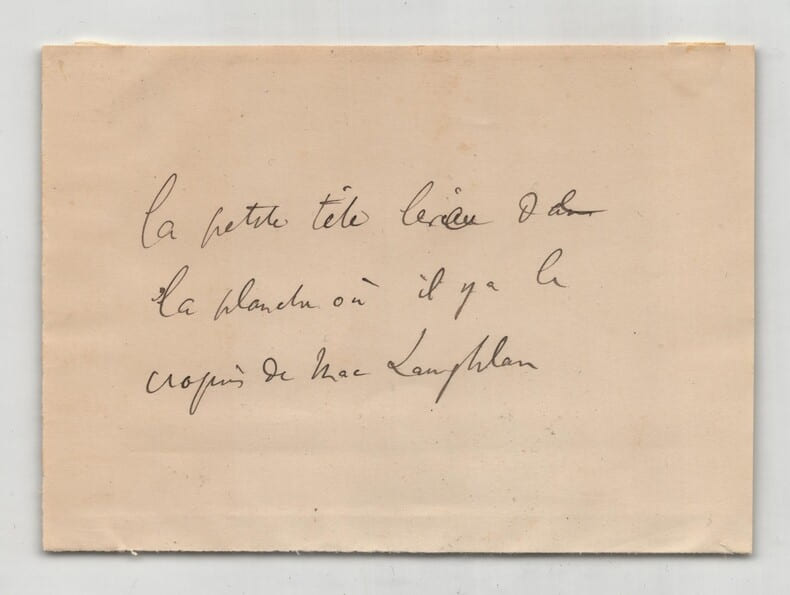 la petite tête dans
la planche où il y a le
croquis de Mac Laughlan